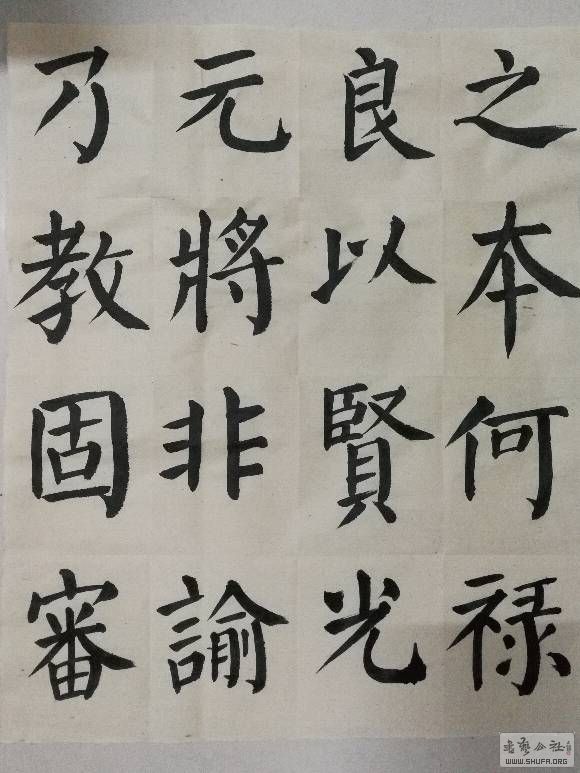 乃元良之
教將以本
固非賢何
審諭光禄
書藝公社
WWW.SHUFA.ORG